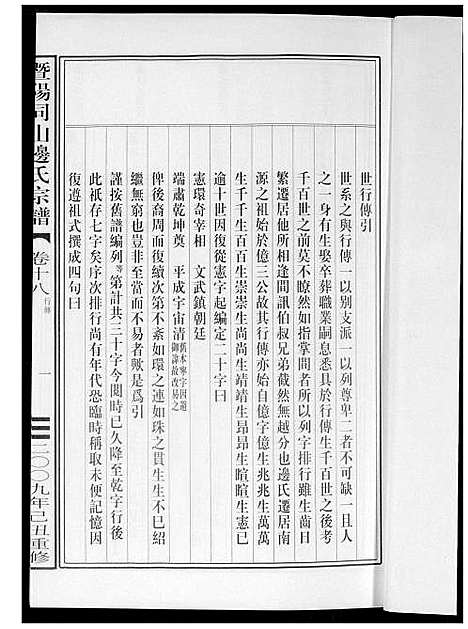 世行傳引
世系之與行傳一以別支派一以列尊卑二者不可缺一且人
之一身有生娶卒葬職業嗣息悉具於行傳生千百世之後考
千百世之前莫不瞭然如指掌間者所以列字排行雖生齒日
繁遷居他所相逢間訊伯叔兄弟截然無越分也邊氏遷居南
源之祖始於億三公故其行傳亦始自億字億生兆兆生萬萬
生千千生百百生崇崇生尚尚生靖靖生昂昂生暄暄生憲已
逾十世因復從憲字起編定二十字曰
憲環奇宰相　文武鎮朝廷
端肅乾坤奠　平成宇宙清舊本寧字因避御諱故改易之
俾後裔周而復續次第不紊如環之連如珠之貫生生不已紹
繼無窮也豈非至當而不易者歟是爲引
謹按舊譜編列等第計共三十字今閱時已久降至乾字行後
此祇存七字矣序次排行尚有年代恐臨時稱取未便記憶因
復遵祖式撰成四句曰
暨陽同山邊氏宗譜
卷十八
行傳
一
二〇〇九年己丑重修